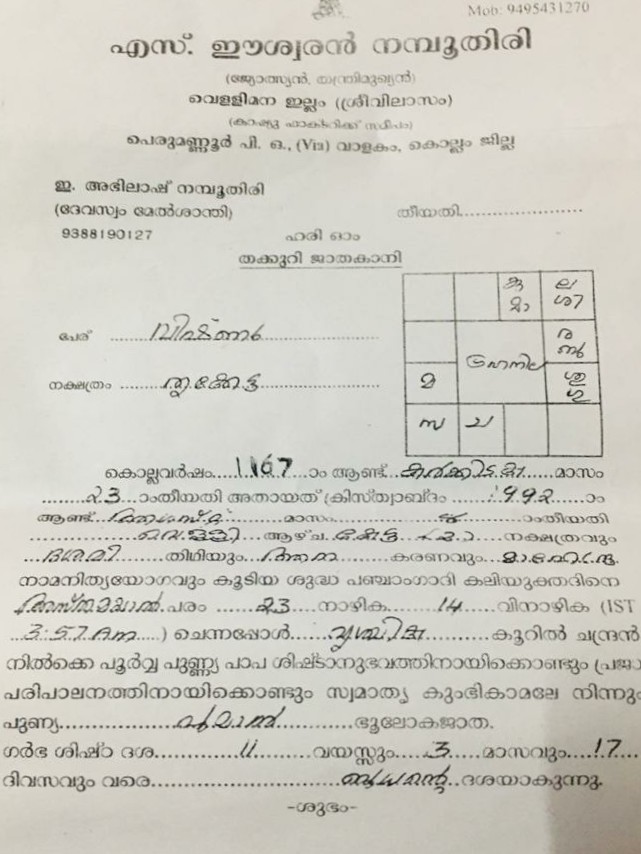 Mob: 9495431270
എസ്. ഈശ്വരൻ നമ്പൂതിരി
(ജ്യോത്സ്യൻ, യന്ത്രിമുഖ്യൻ)
വെളളിമന ഇല്ലം (ശ്രീവിലാസം)
(കാഷ്യു ഫാക്ടറിക്ക് സമീപം)
പെരുമണ്ണൂർ പി. ഒ., (Via) വാളകം, കൊല്ലം ജില്ല
ഇ. അഭിലാഷ് നമ്പൂതിരി
(ദേവസ്വം മേൽശാന്തി) തീയതി......................
9388190127 ഹരി ഓം
തക്കുറി ജാതകാനി
കു ല
മാ ശി
ര
ബു
മ ശു
ഗു
സ ച
പേര്
നക്ഷത്രം ........തൃക്കേട്ട........
കൊല്ലവർഷം....1167...ാം ആണ്ട്...കർക്കിടകം......മാസം
........23....ാംതീയതി അതായത് ക്രിസ്ത്വാബ്ദം ......1992....ാം
ആണ്ട്...ആഗസ്റ്റ്......മാസം......ാംതീയതി
......വെള്ളി...ആഴ്ച നക്ഷത്രവും
...ദശമി......തിഥിയും കരണവും
നാമനിത്യയോഗവും കൂടിയ ശുദ്ധ പഞ്ചാംഗാദി കലിയുക്തദിനെ
അസ്തമയാൽ പരം ......23....നാഴിക........14......വിനാഴിക (IST
...3:57 Am.....) ചെന്നപ്പോൾ......വൃശ്ചിക............കൂറിൽ ചന്ദ്രൻ
നിൽക്കെ പൂർവ്വ പുണ്ണ്യ പാപ ശിഷ്ടാനുഭവത്തിനായിക്കൊണ്ടും പ്രജാ
പരിപാലനത്തിനായിക്കൊണ്ടും സ്വമാതൃ കുംഭികാമലേ നിന്നും
പുണ്യ....................പുമാൻ..............ഭൂലോകജാത.
ഗർഭ ശിഷ്ഠാ ദശ..............11.........വയസ്സും....3.....മാസവും....17....
ദിവസവും വരെ................................ബുധന്റെ..ദശയാകുന്നു.
-ശുഭം-